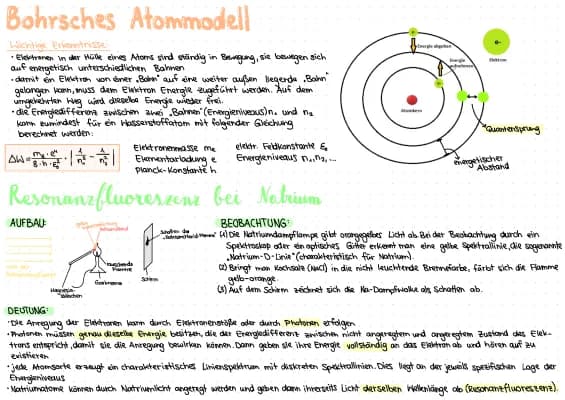 Bohrsches Atommodell
Wichtige Erkenntnisse:
• Elektronen in der Hülle eines Atoms sind ständig in Bewegung, sie bewegen sich
auf energetisch unterschiedlichen Bahnen
• damit ein Elektron von einer „Bahn" auf eine weiter außen liegende „Bahn"
gelangen kann, muss dem Elektron Energie zugeführt werden. Auf dem
umgekehrten Weg wird dieselbe Energie wieder frei.
• die Energiedifferenz zwischen zwei „Bahnen" (Energieniveaus) n₁ und n₂
kann zumindest für ein Wasserstoffatom mit folgender Gleichung
berechnet werden:
ΔW = mₑ · e⁴ / 8 · h² · ε₀² · | 1/n₁² − 1/n₂² |
Elektronenmasse mₑ elektr. Feldkonstante ε₀
Elementarladung e Energieniveaus n₁, n₂, ...
Planck-Konstante h
Energie abgeben
Energie aufnehmen
Elektron
Atomkern
Quantensprung
energetischer
Abstand
Resonanzfluoreszenz bei Natrium
AUFBAU:
Schatten der
Schirm
Gasbrenner
Magnesia-
stäbchen
BEOBACHTUNG:
(1) Die Natriumdampflampe gibt orangegelbes Licht ab. Bei der Beobachtung durch ein
Spektroskop oder ein optisches Gitter erkennt man eine gelbe Spektrallinie, die sogenannte
„Natrium-D-Linie" (charakteristisch für Natrium).
(2) Bringt man Kochsalz (NaCl) in die nicht leuchtende Brennerfarbe, färbt sich die Flamme
gelb-orange.
(3) Auf dem Schirm zeichnet sich die Na-Dampfwolke als Schatten ab.
DEUTUNG:
• Die Anregung der Elektronen kann durch Elektronenstöße oder durch Photonen erfolgen
• Photonen müssen genau dieselbe Energie besitzen, die der Energiedifferenz zwischen nicht angeregtem und angeregtem Zustand des Elek-
trons entspricht, damit sie die Anregung bewirken können. Dann geben sie ihre Energie vollständig an das Elektron ab und hören auf zu
existieren
• jede Atomsorte erzeugt ein charakteristisches Linienspektrum mit diskreten Spektrallinien. Dies liegt an der jeweils spezifischen Lage der
Energieniveaus
• Natriumatome können durch Natriumlicht angeregt werden und geben dann ihrerseits Licht derselben Wellenlänge ab (Resonanzfluoreszenz).